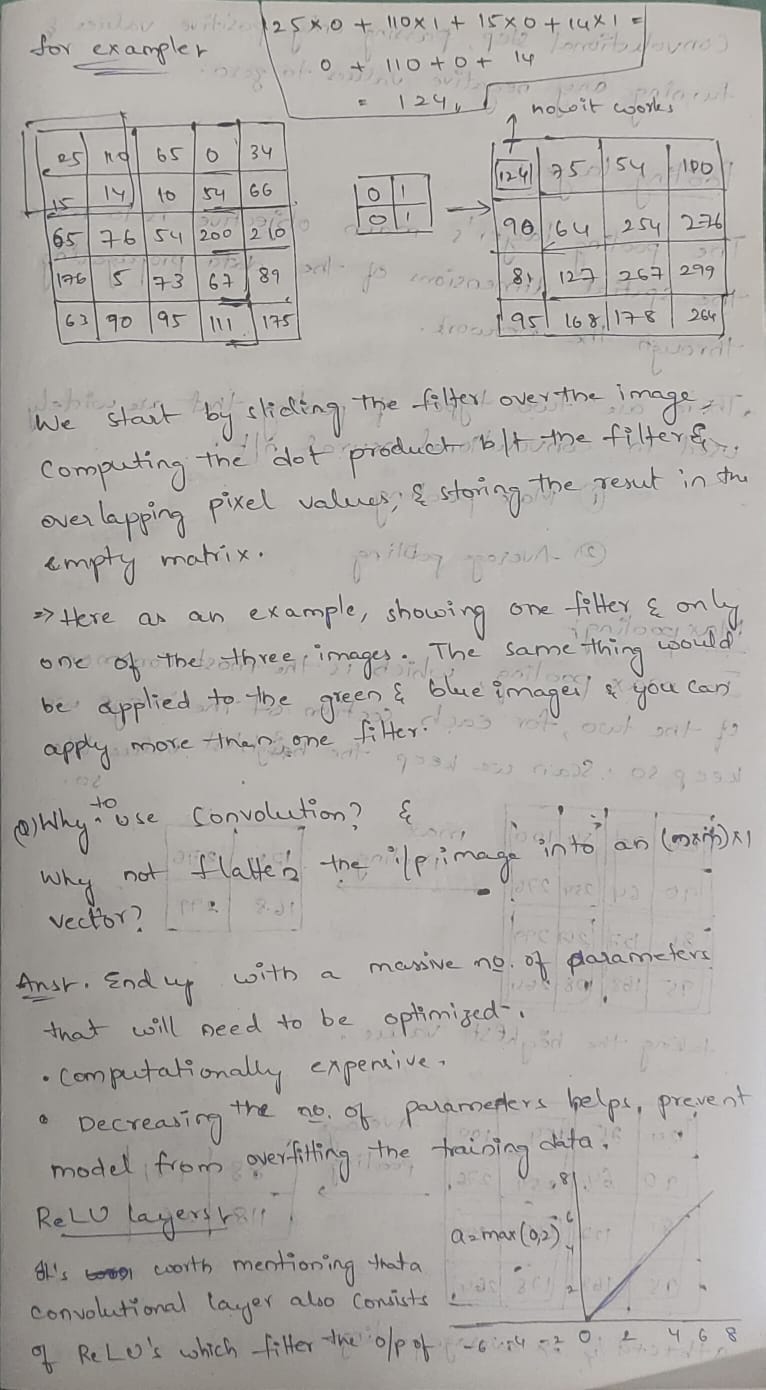 for example:
125x0 + 110x1 + 15x0 + 14x1 =
0 + 110 + 0 + 14
= 124,,
how it works
25 110 65 0 34
15 14 10 54 66
65 76 54 200 210
176 5 73 67 89
63 90 95 111 175
0 1
0 1
124 75 54 100
90 64 254 276
81 127 267 299
95 168 178 264
We start by sliding the filter over the image,
computing the dot product b/t the filter &
overlapping pixel values, & storing the resut in the
empty matrix.
=> Here as an example, showing one filter & only
one of the three images. The same thing would
be applied to the green & blue images & you can
apply more than one filter.
Q) Why to use convolution? &
why not flatten the i/p image into an (mxn)x1
vector?
Ansr. End up with a massive no. of parameters
that will need to be optimized.
• Computationally expensive.
• Decreasing the no. of parameters helps, prevent
model from overfitting the training data.
ReLU layers:
a=max(0,z)
8
6
4
2
-6 -4 -2 0 2 4 6 8
It's worth mentioning that a
convolutional layer also consists
of ReLU's which filter the o/p of